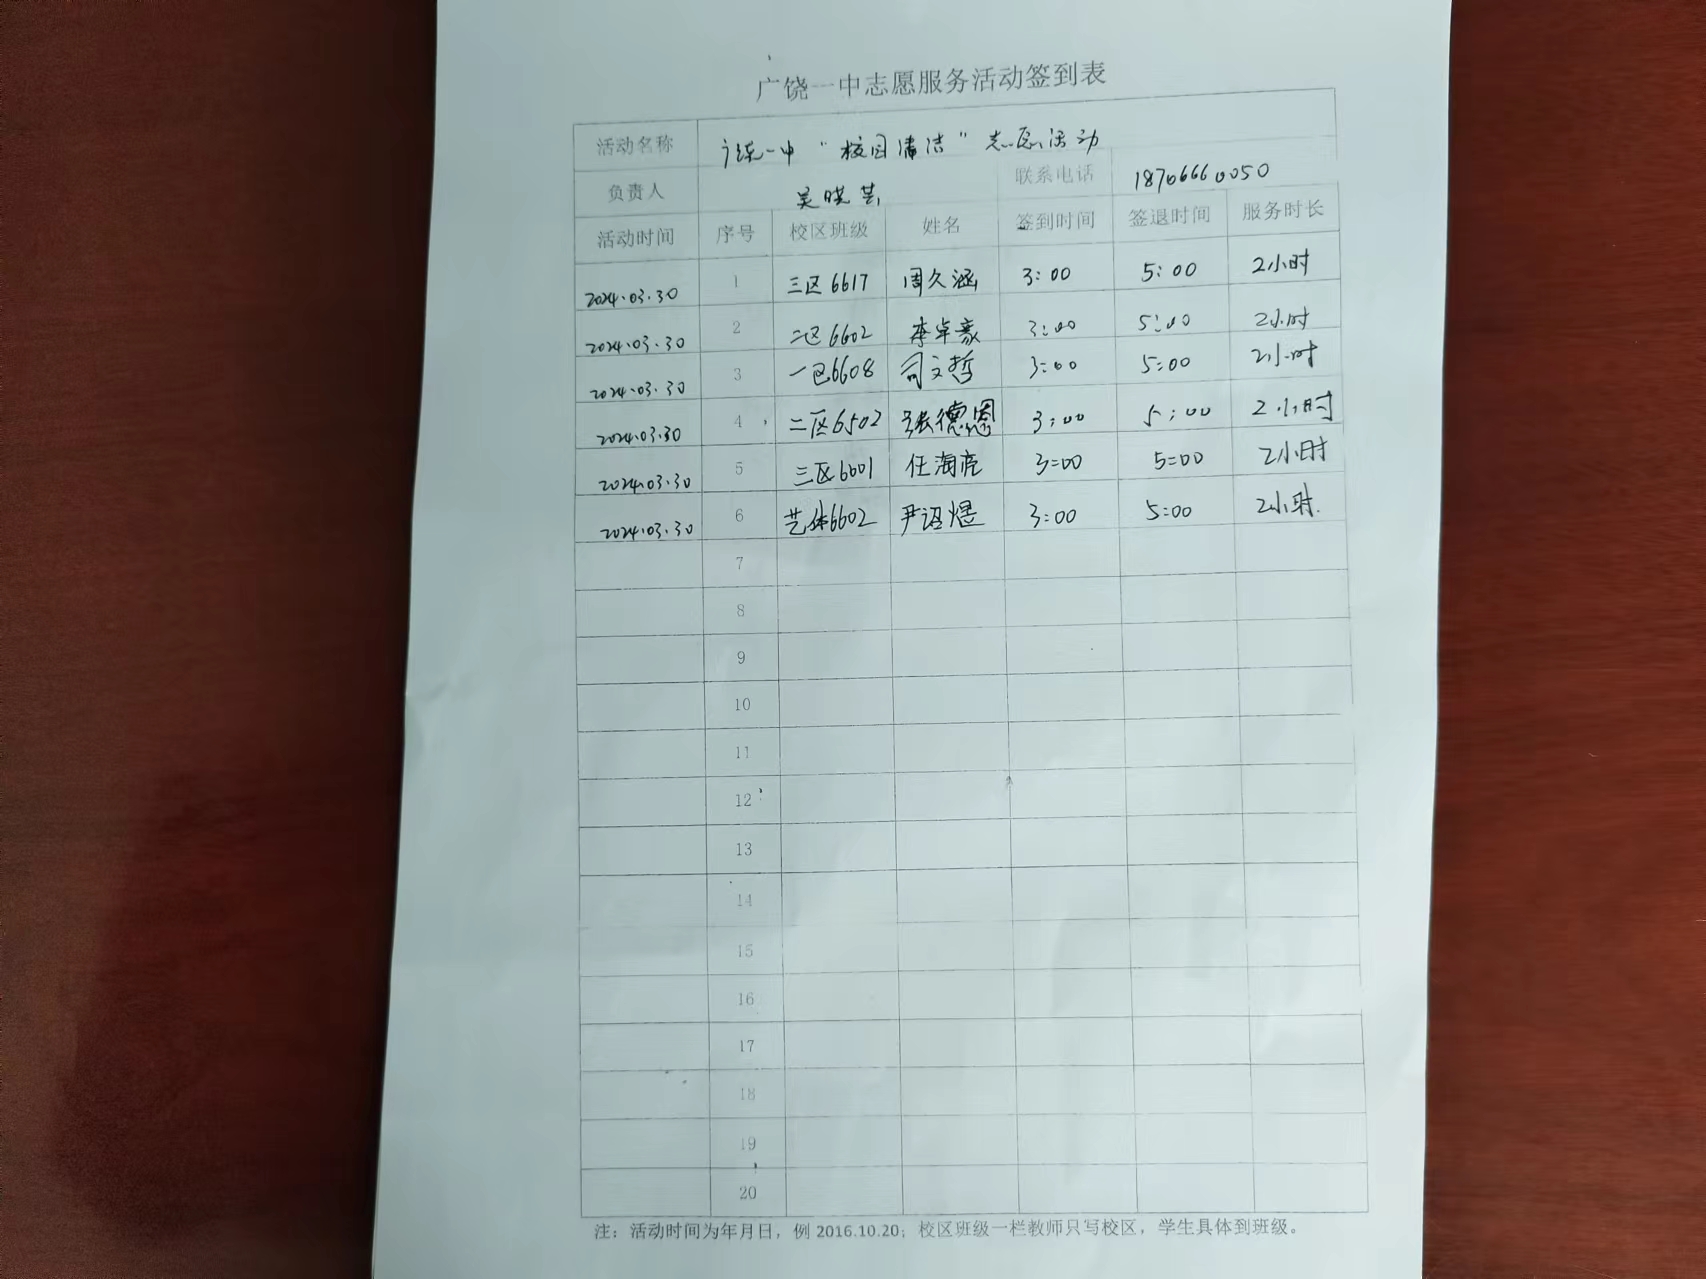 广饶一中志愿服务活动签到表
活动名称 广饶一中“校园清洁”志愿活动
负责人 吴晓芸 联系电话 18706660050
活动时间 序号 校区班级 姓名 签到时间 签退时间 服务时长
2024.03.30 1 三区6617 周久涵 3:00 5:00 2小时
2024.03.30 2 二区6602 李卓豪 3:00 5:00 2小时
2024.03.30 3 一区6608 司文哲 3:00 5:00 2小时
2024.03.30 4 二区6502 张德恩 3:00 5:00 2小时
2024.03.30 5 三区6601 任海亮 3:00 5:00 2小时
2024.03.30 6 艺体6602 尹诏煜 3:00 5:00 2小时.
7
8
9
10
11
12
13
14
15
16
17
18
19
20
注：活动时间为年月日，例 2016.10.20；校区班级一栏教师只写校区，学生具体到班级。